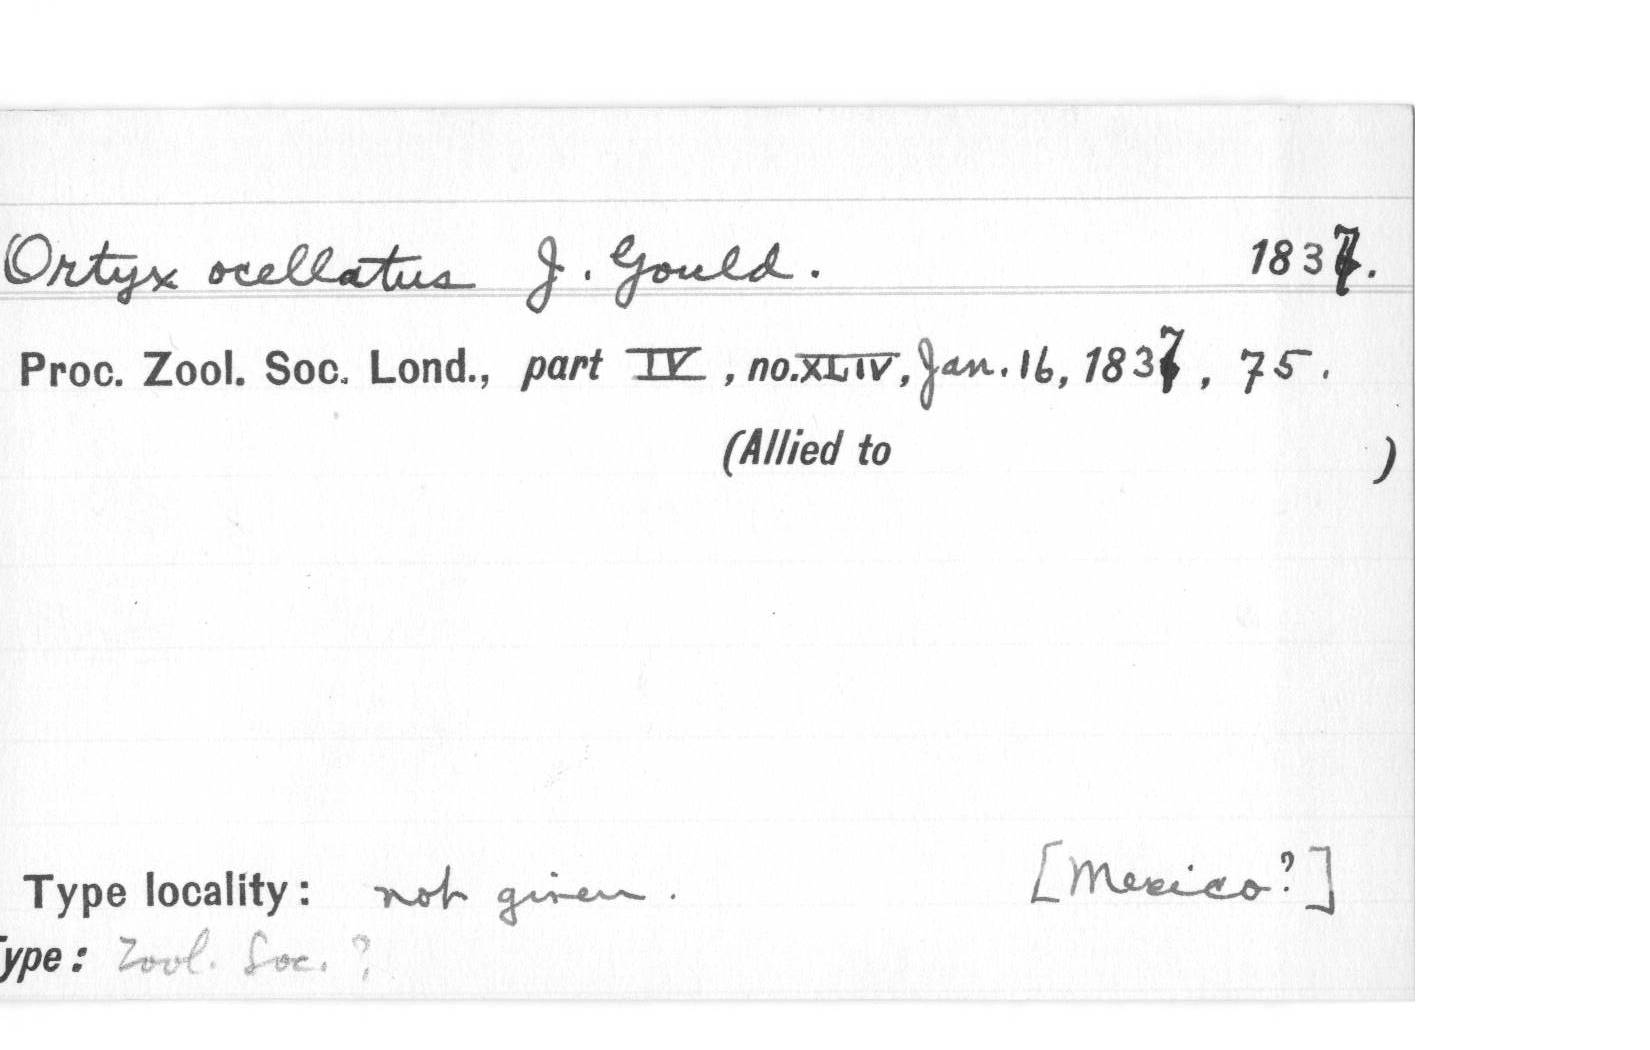 Ortyx ocellatus J. Gould. 1837.
Proc. Zool. Soc. Lond., part IV, no. XLIV, Jan. 16, 1837, 75.
(Allied to )
Type locality: not given. [Mexico?]
Type: Zool. Soc. ?